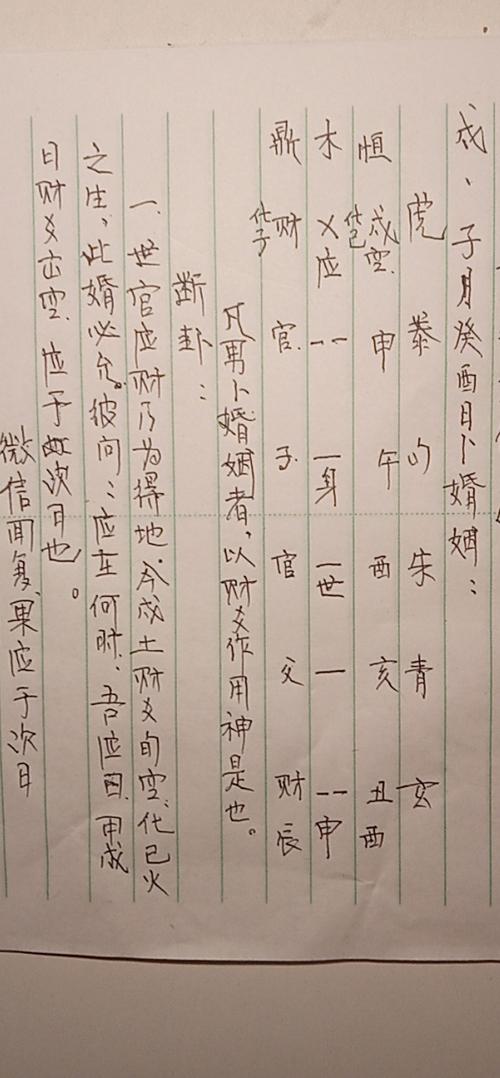 戌、子月癸酉日卜婚姻：
虎 螣 勾 朱 青 玄
恒 戌空 化巳 申 午 酉 亥 丑 酉
木 乂应 -- 一身 一世 一 -- 申
鼎 财 化子 官 子 官 父 财 辰
凡男卜婚姻者，以财爻作用神是也。
断卦：
一、世官应财乃为得地。今戌土财爻旬空、化巳火
之生，此婚必允。彼问：应在何时、吾应曰、甲戌
日财爻出空、应于次日也。
微信回复、果应于次日